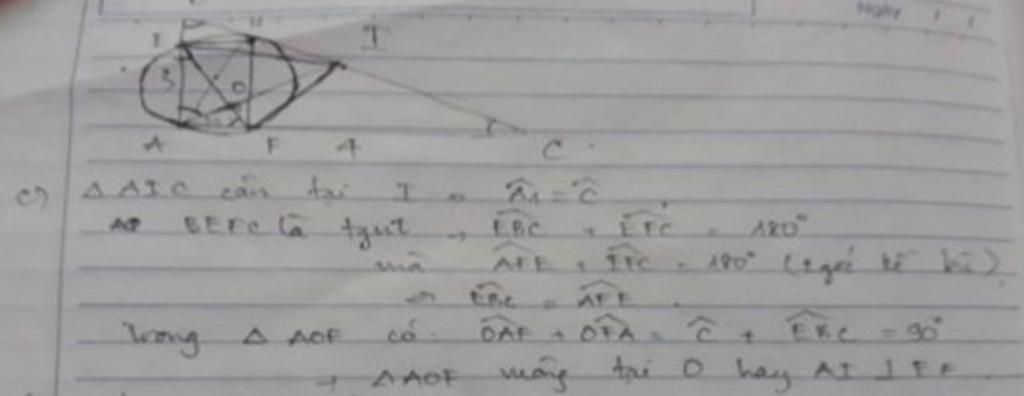 Ngày
I
B
O
A F 4 C
c) △AIC cân tại I → Â1 = Ĉ
BEFC là tgnt → EBC + EFC = 180°
mà AFE + EFC = 180° (2 góc kề bù)
→ EBC = AFE.
Trong △ AOF có: OAF + OFA = Ĉ + EBC = 90°
→ △AOF vuông tại O hay AI ⊥ EF